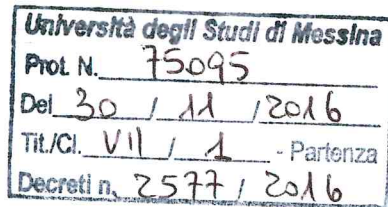 Università degli Studi di Messina
Prot. N. 75095
Del 30 / 11 / 2016
Tit./Cl. VII / 1 - Partenza
Decreti n. 2577 / 2016